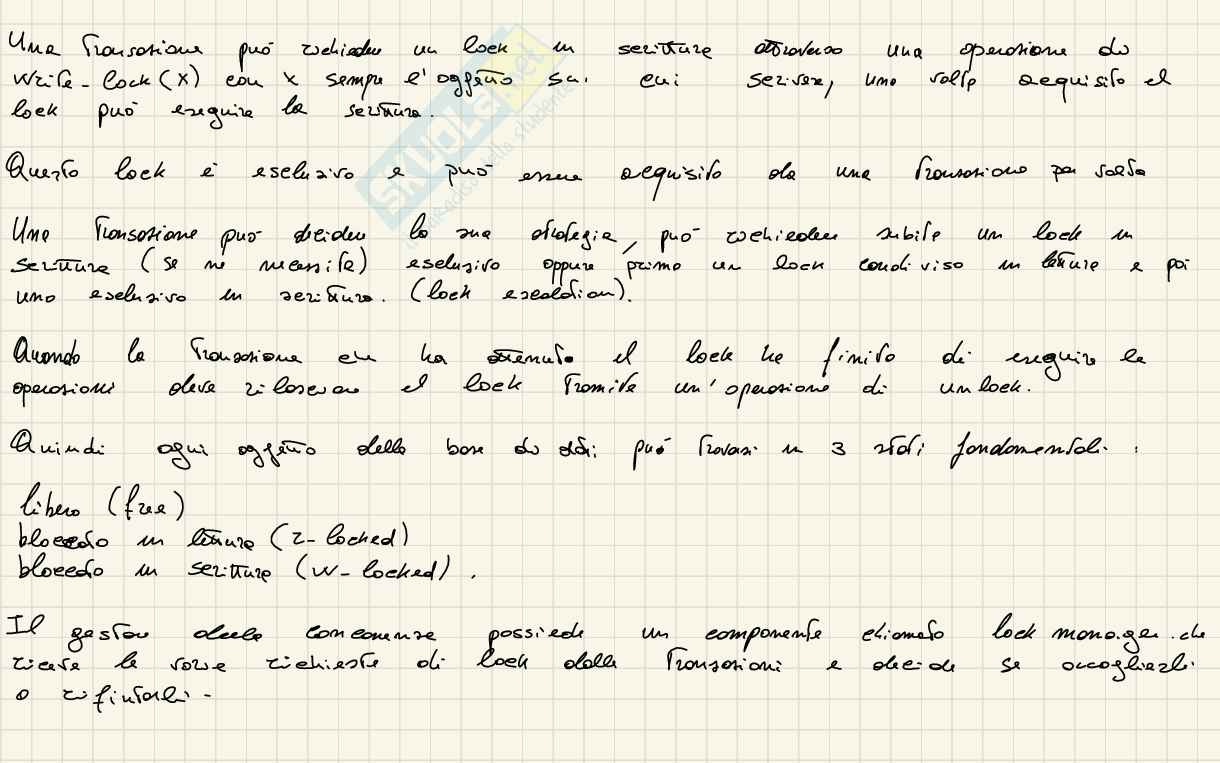 Una Transazione può richiedere un lock in scrittura attraverso una operazione di
write-lock(X) con x sempre l'oggetto su cui scrivere, una volta acquisito il
lock può eseguire la scrittura.
Questo lock è esclusivo e può essere acquisito da una Transazione per volta
Una Transazione può decidere la sua strategia, può richiedere subito un lock in
scrittura (se ne necessita) esclusivo oppure prima un lock condiviso in lettura e poi
uno esclusivo in scrittura. (lock escalation).
Quando la Transazione che ha ottenuto il lock ha finito di eseguire le
operazioni deve rilasciare il lock Tramite un'operazione di unlock.
Quindi ogni oggetto della base di dati può Trovarsi in 3 stati fondamentali:
libero (free)
bloccato in lettura (r-locked)
bloccato in scrittura (w-locked).
Il gestore della concorrenza possiede un componente chiamato lock manager che
riceve le varie richieste di lock dalle Transazioni e decide se accoglierle
o rifiutarli.
SKUOLA.net
il paradiso dello studente